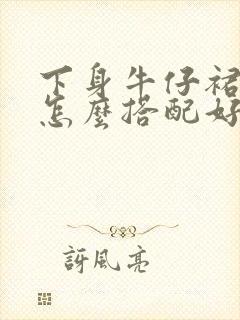 下身牛仔裙
怎麼搭配好
訝風亮